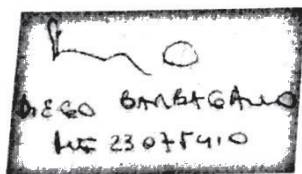 DIEGO BARBAGALLO
23075410